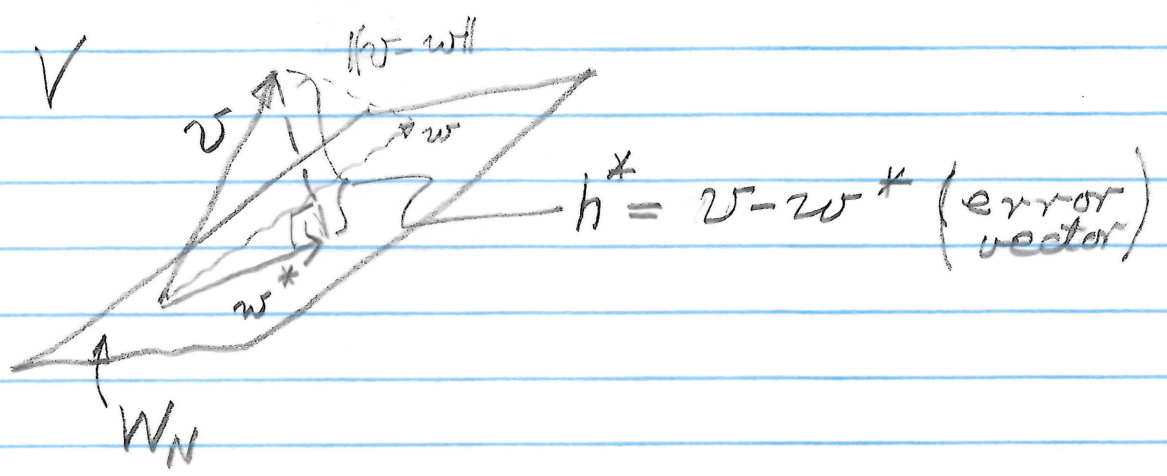 V
‖v-w‖
v
w
h* = v-w* (error vector)
w*
W_N